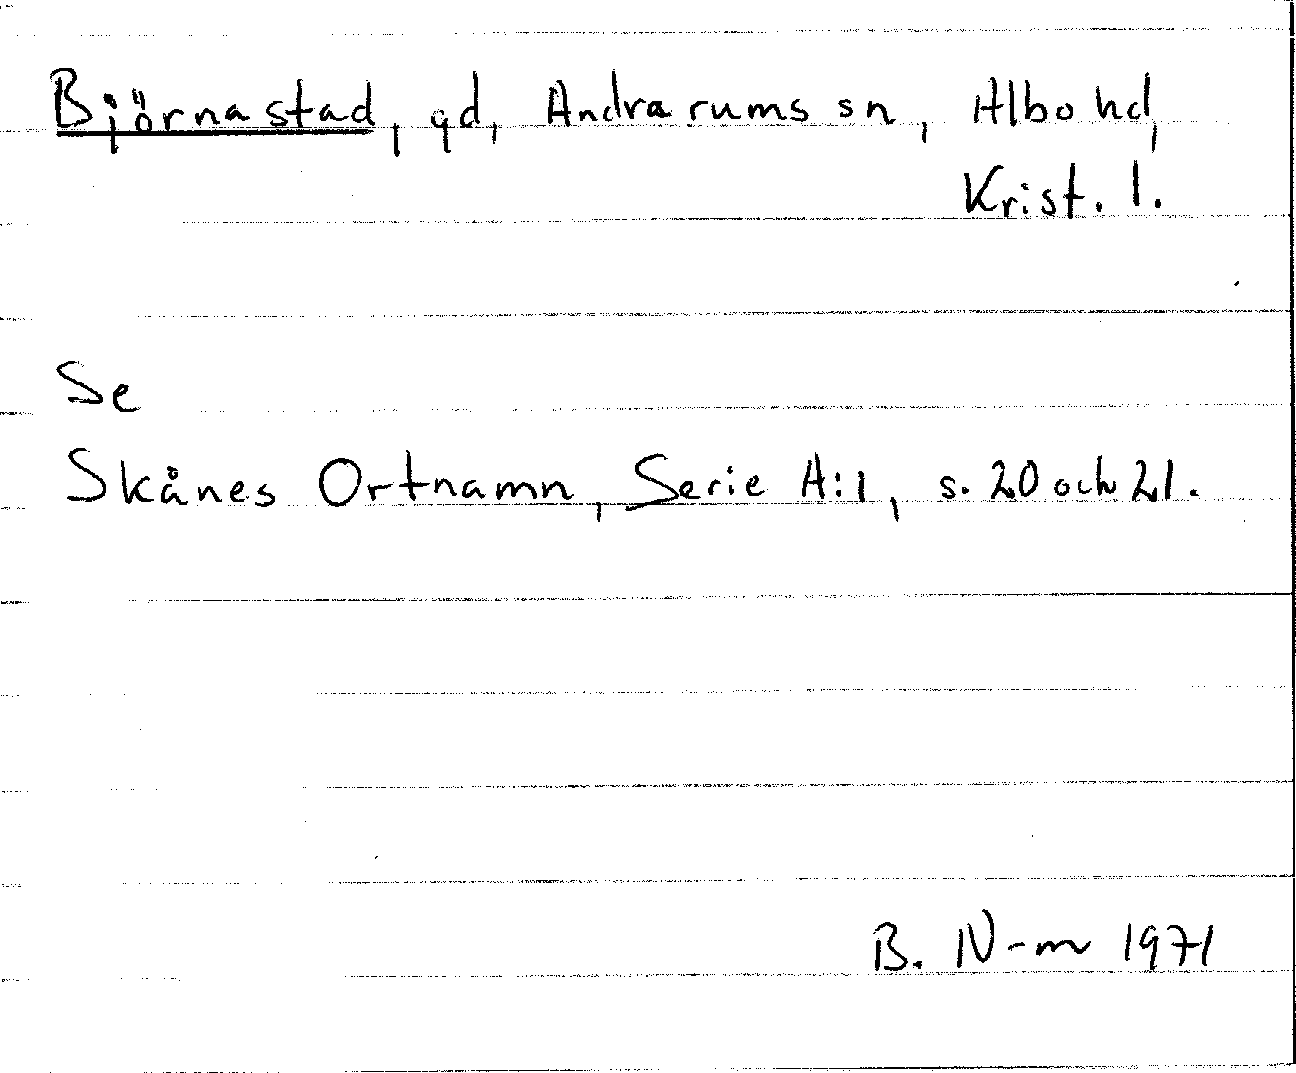 Björnastad, gd, Andrarums sn, Albo hd,
Krist. l.
Se
Skånes Ortnamn, Serie A:1, s. 20 och 21.
B. N-m 1971